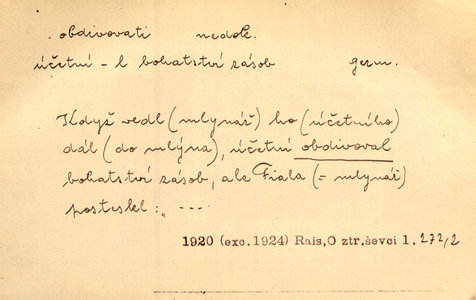 obdivovati nedok.
účetní - l bohatství zásob germ.
Když vedl (mlynář) ho (účetního)
dál (do mlýna), účetní obdivoval
bohatství zásob, ale Fiala (= mlynář)
posteskl : „ ---
1920 (exc.1924) Rais,O ztr.ševci 1. 272,2